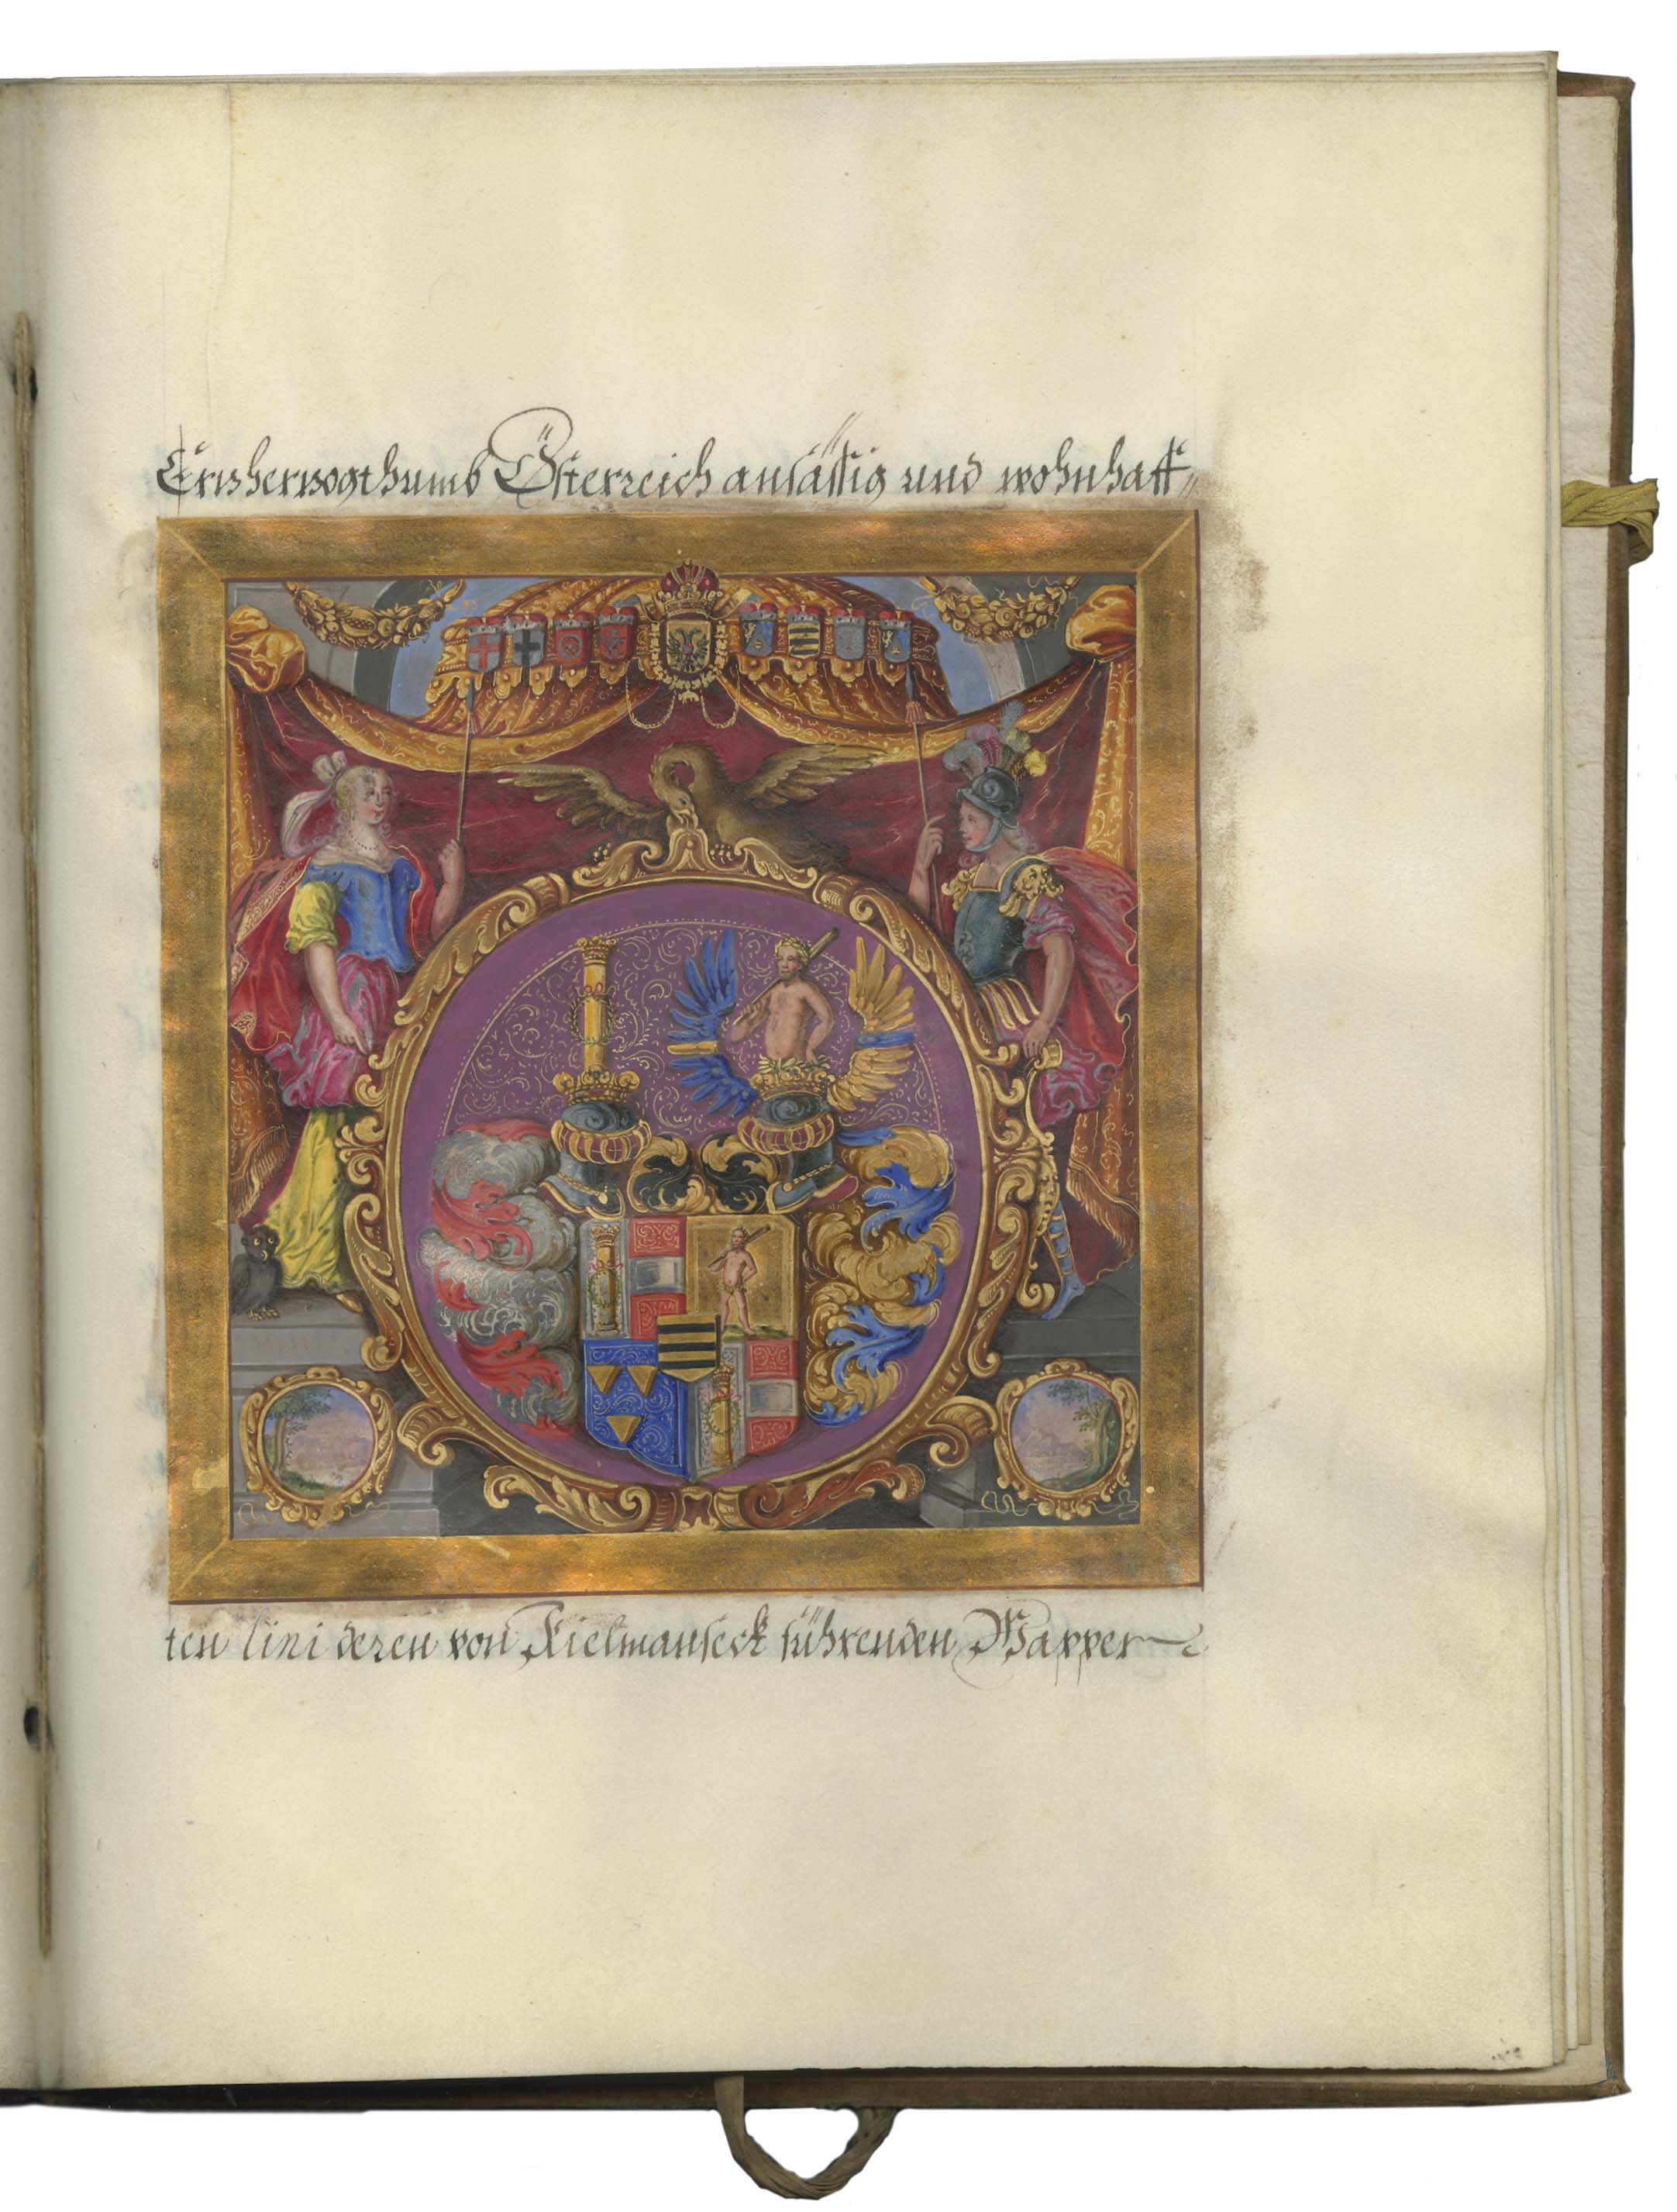 Ertzhertzogthumb Österreich ansässig und wohnhaff⸗
ten lini deren von Kielmanseck führenden Wappen